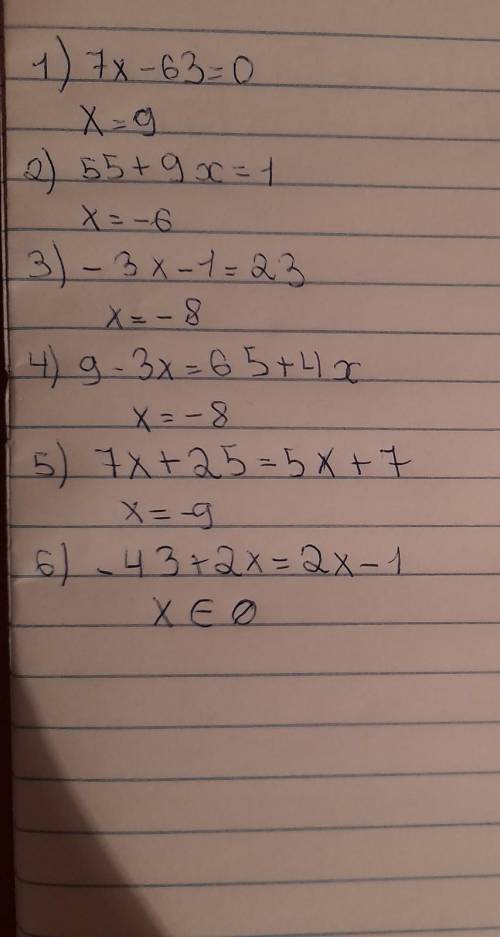 1) 7x-63=0
x=9
2) 55+9x=1
x=-6
3) -3x-1=23
x=-8
4) 9-3x=65+4x
x=-8
5) 7x+25=5x+7
x=-9
6) -43+2x=2x-1
x∈∅